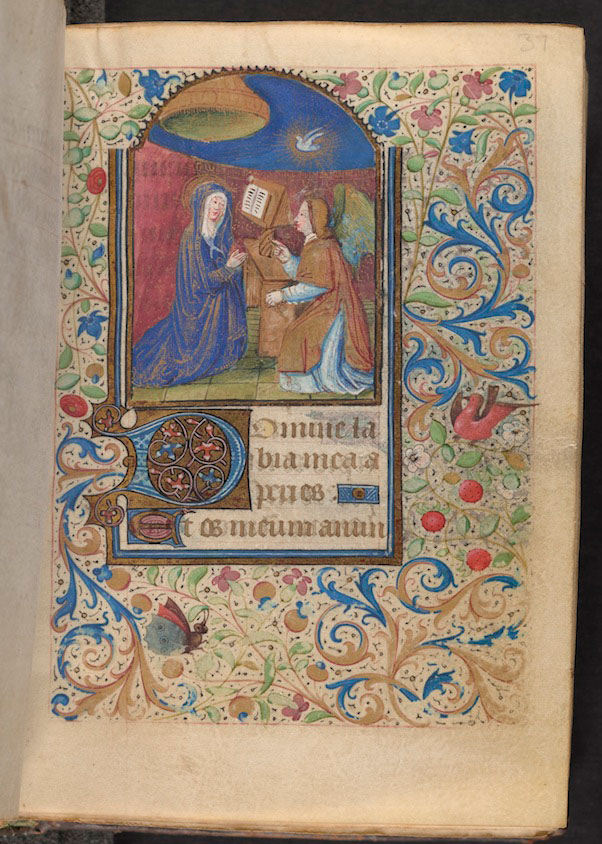 37
Domine la
bia mea a
peries
Et os meum anun